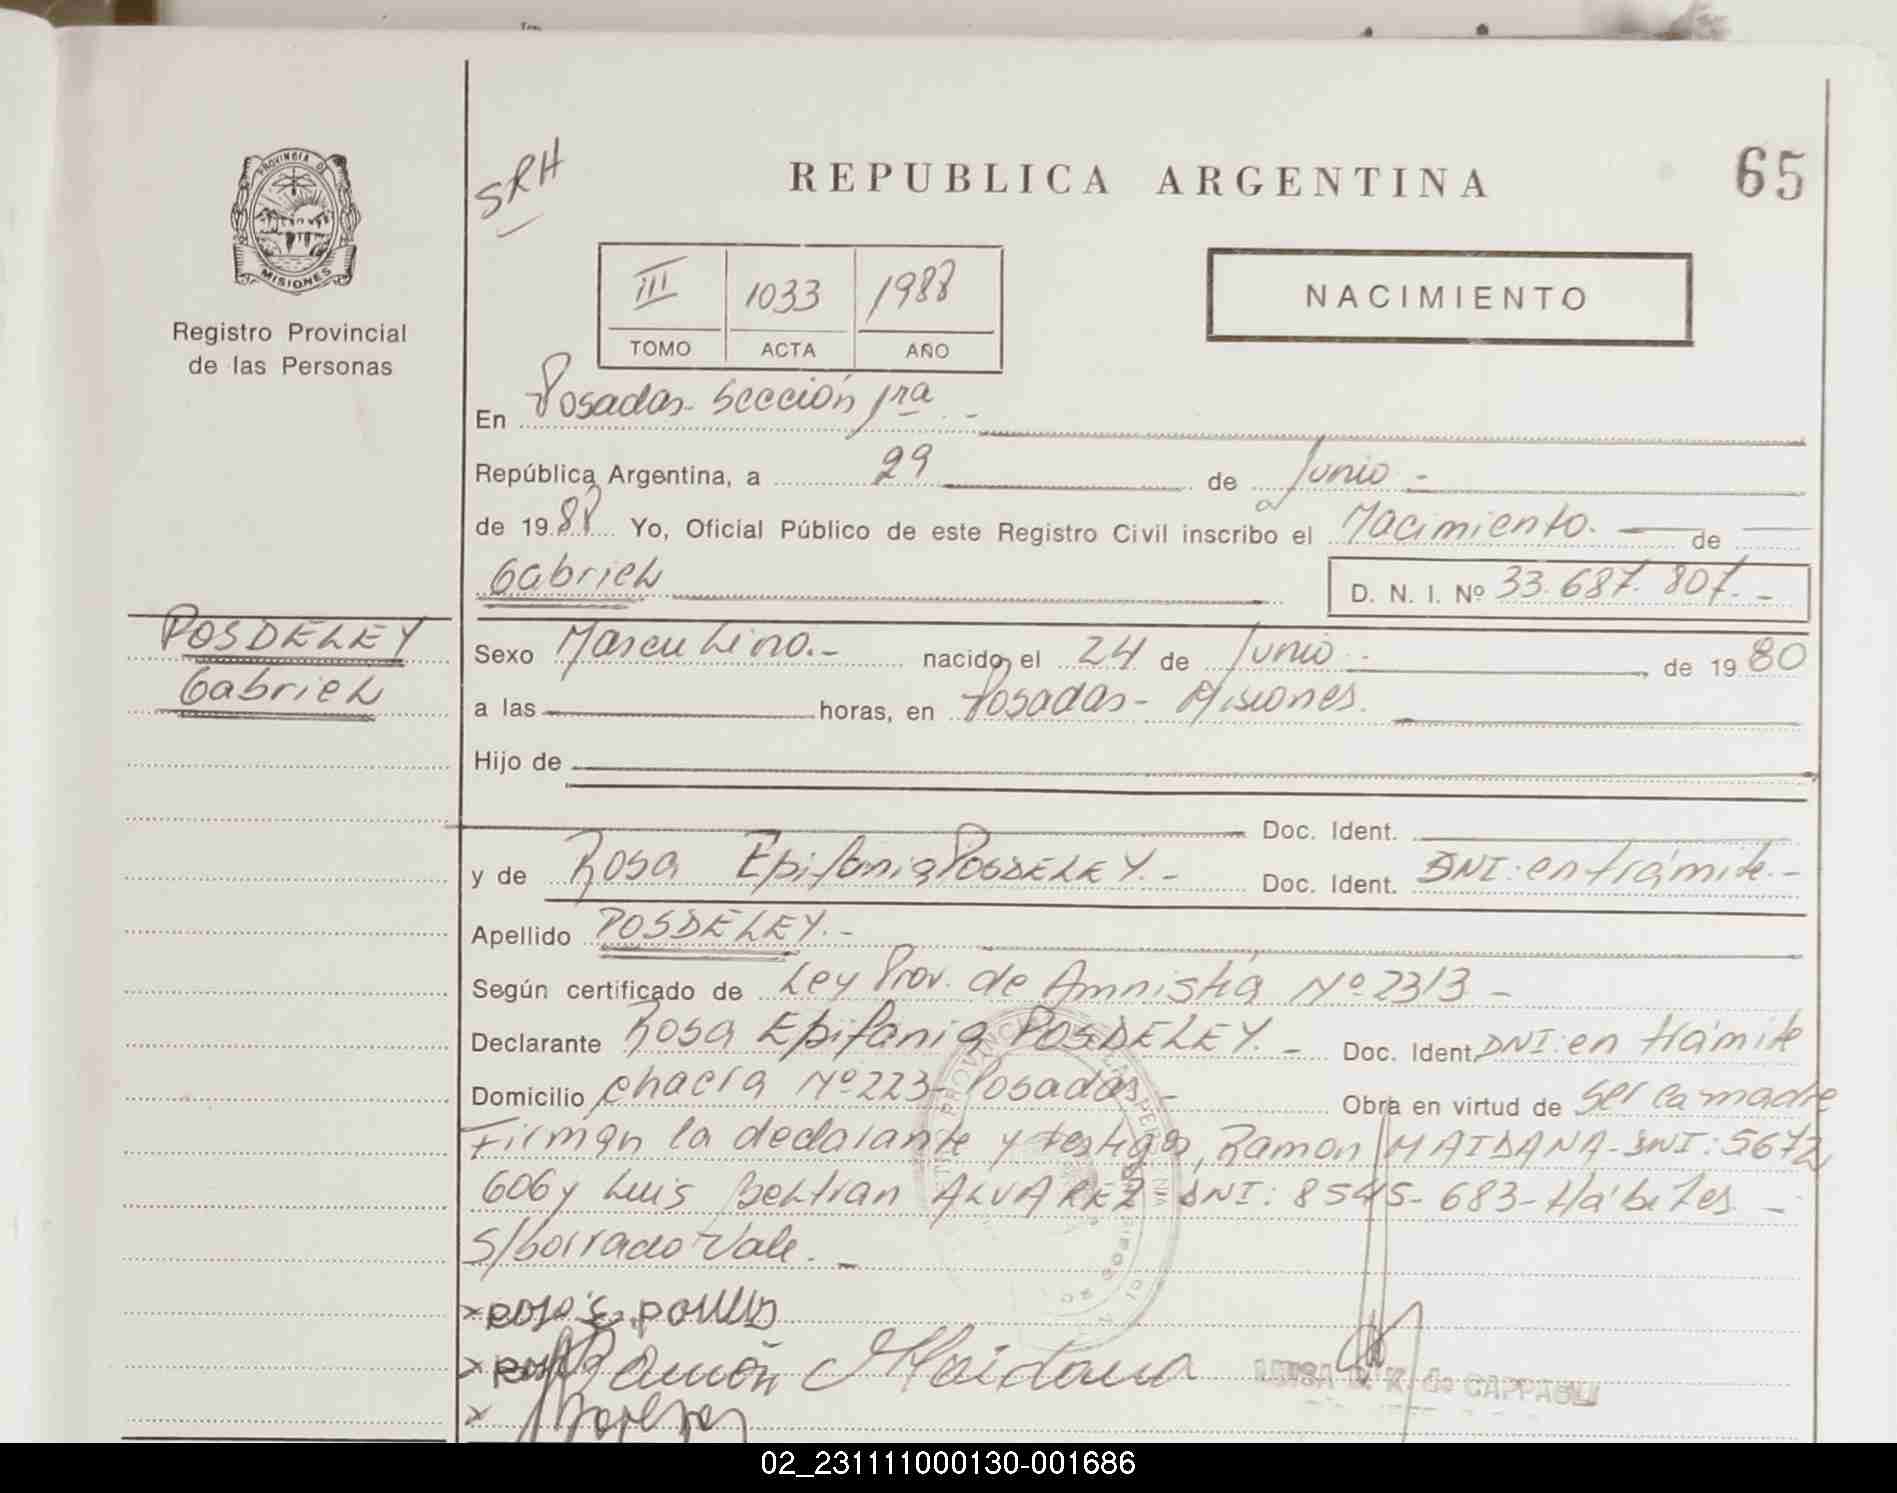 65
SRH
REPUBLICA ARGENTINA
PROVINCIA DE
MISIONES
Registro Provincial
de las Personas
III 1033 1988
TOMO ACTA AÑO
NACIMIENTO
En Posadas- Sección 1ra -
República Argentina, a 29 de Junio -
de 1988 Yo, Oficial Público de este Registro Civil inscribo el Nacimiento. — de
Gabriel D. N. I. Nº 33.687.807.-
POSDELEY
Gabriel
Sexo Masculino.- nacido el 24 de Junio - de 1980
a las horas, en Posadas- Misiones.
Hijo de
Doc. Ident.
y de Rosa Epifania POSDELEY.- Doc. Ident. DNI: en trámite.-
Apellido POSDELEY.-
Según certificado de Ley Prov. de Amnistía Nº 2313 -
Declarante Rosa Epifania POSDELEY. - Doc. Ident. DNI: en trámite
Domicilio chacra Nº 223- Posadas - Obra en virtud de ser la madre
Firman la declarante y testigos, Ramon MAIDANA- DNI: 5672
606 y Luis Beltran ALVAREZ DNI: 8545- 683- Hábiles -
S/borrado Vale. -
x
x Ramón Maidana
x
LUISA D. K. de CAPPAGLI
02_231111000130-001686